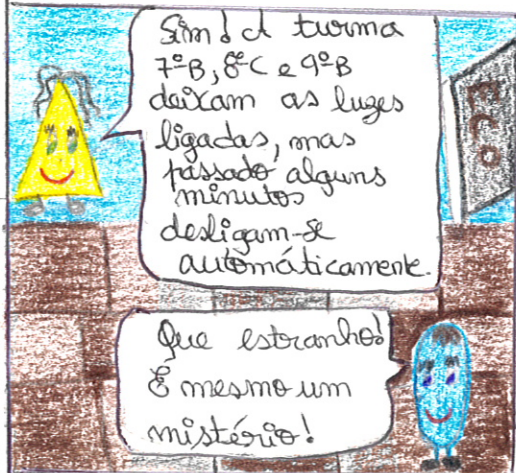 Sim! A turma
7ºB, 8ºC e 9ºB
deixam as luzes
ligadas, mas
passado alguns
minutos
desligam-se
automáticamente.
ECO
Que estranho!
É mesmo um
mistério!